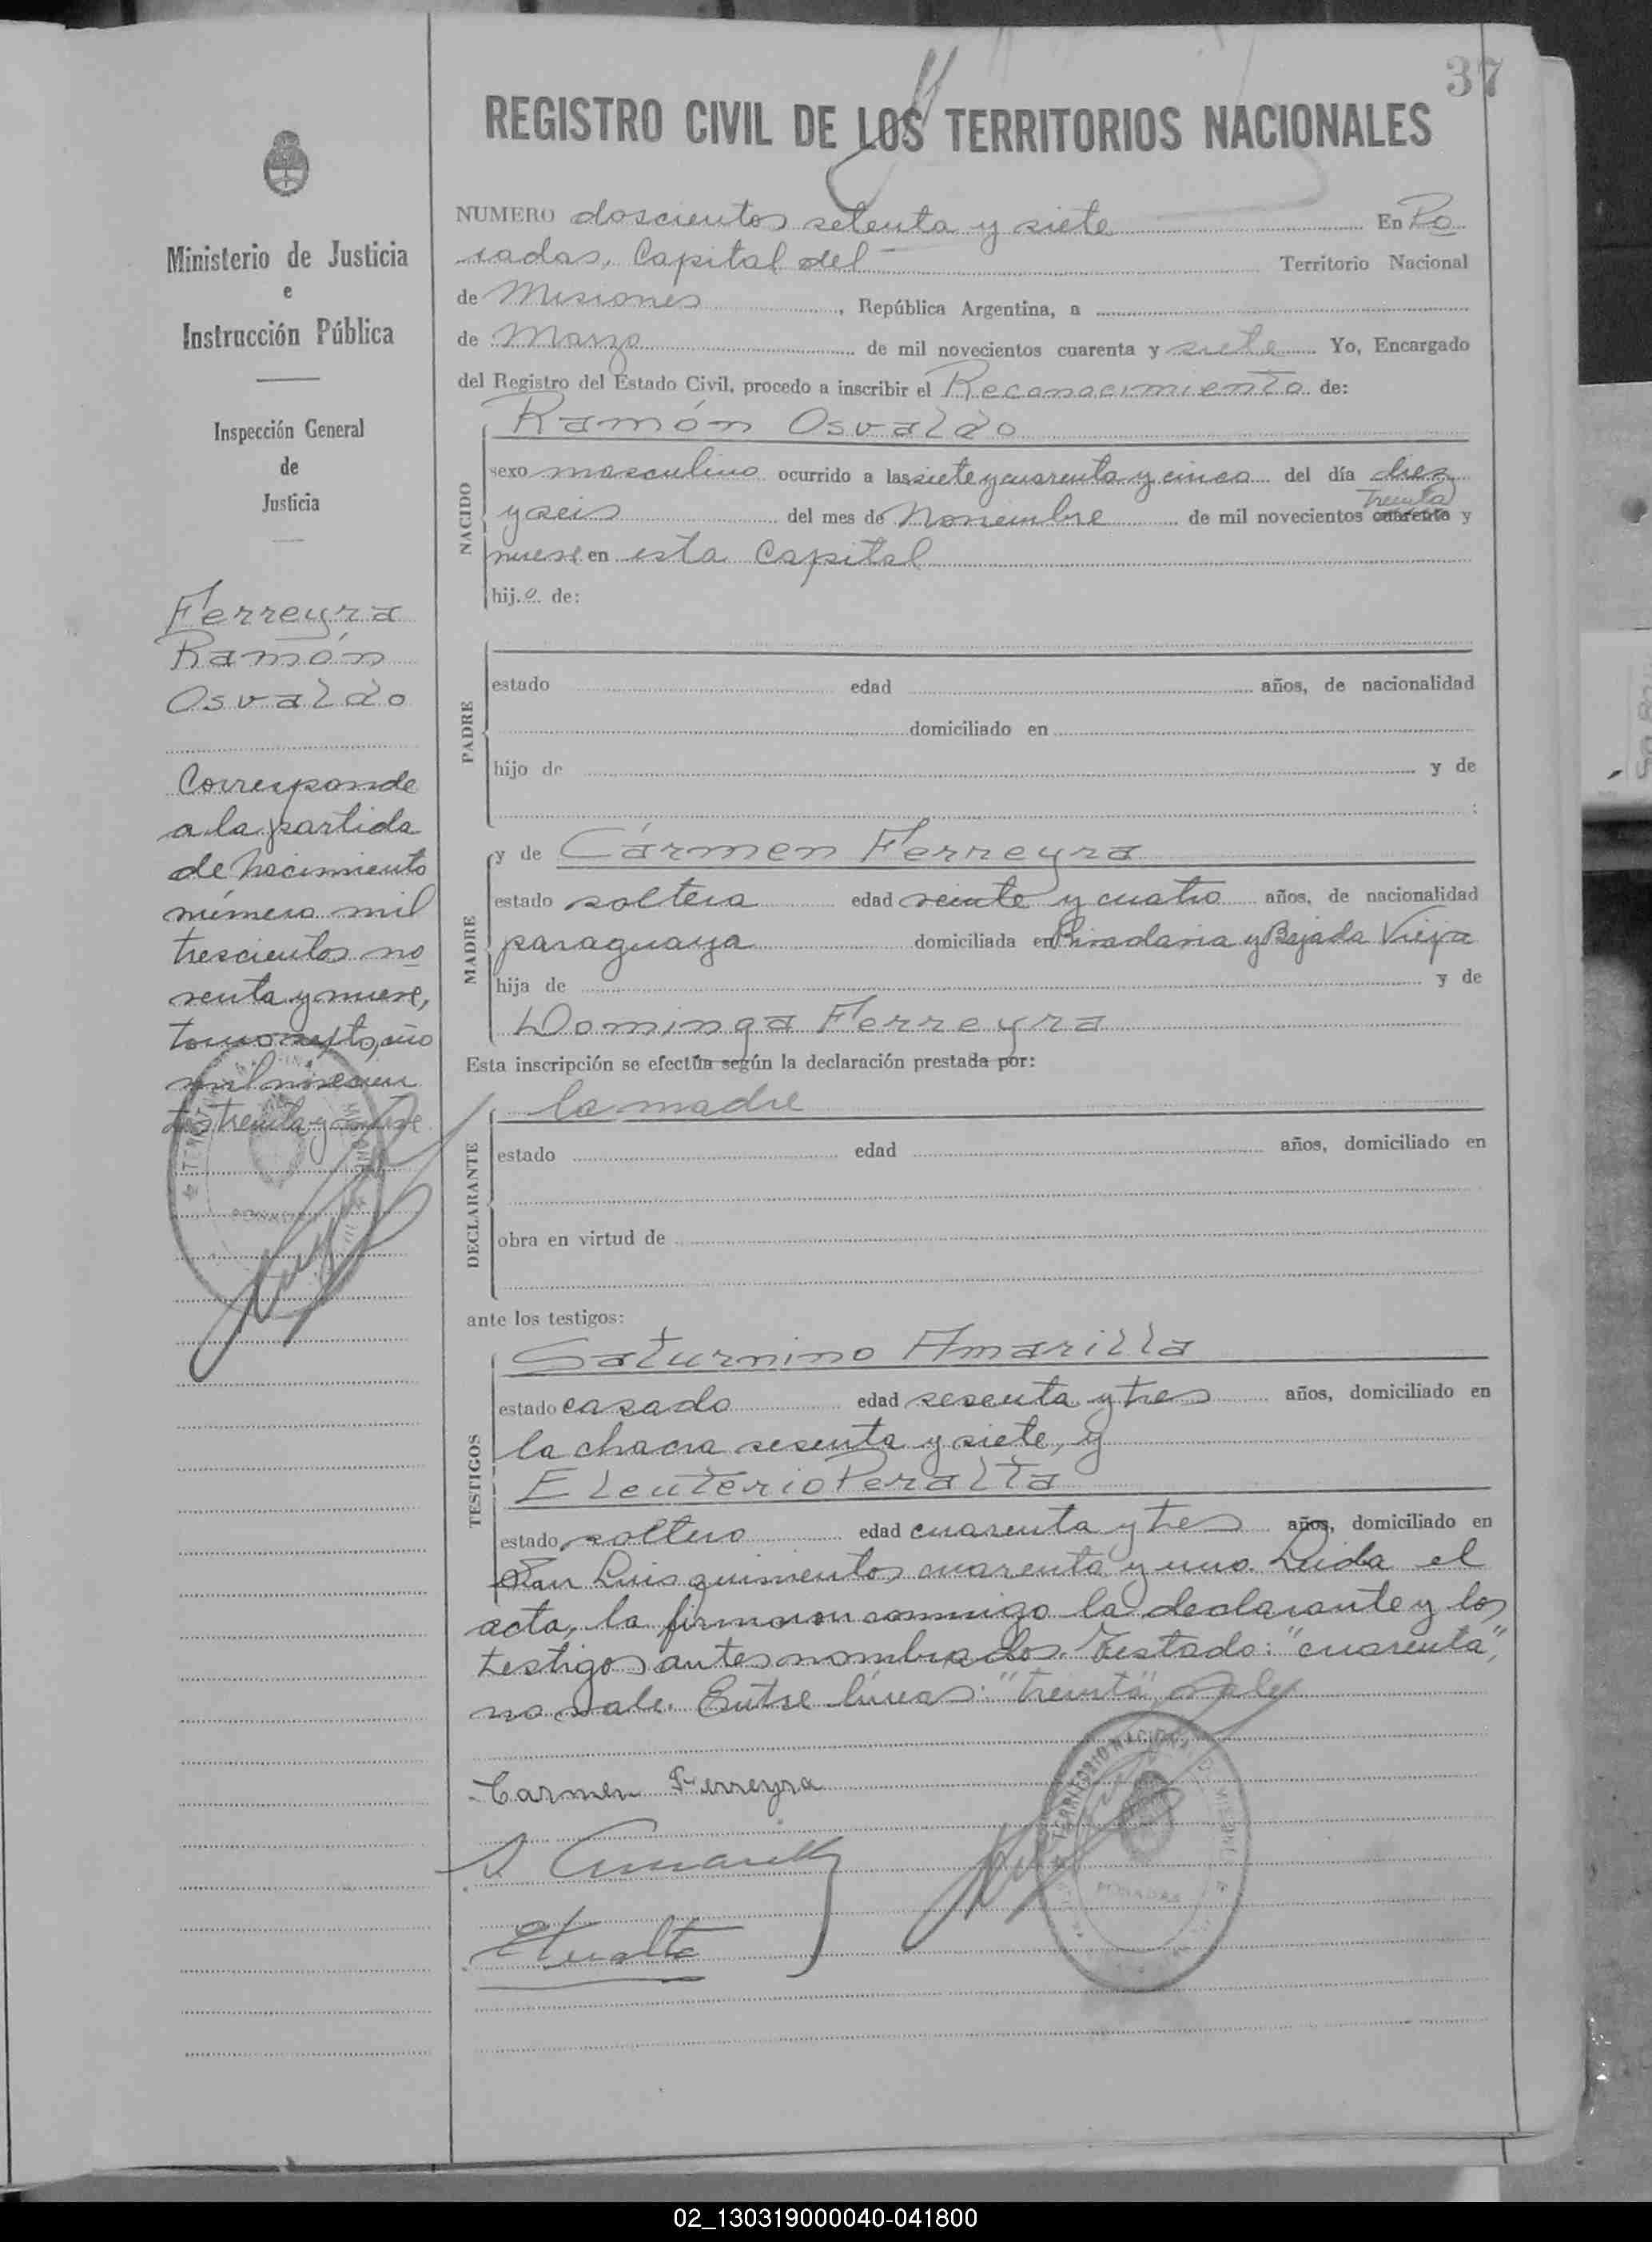 37
REGISTRO CIVIL DE LOS TERRITORIOS NACIONALES
Ministerio de Justicia
e
Instrucción Pública
Inspección General
de
Justicia
Ferreyra
Ramón
Osvaldo
Corresponde
a la partida
de Nacimiento
número mil
trescientos no
venta y nueve,
tomo sexto, año
mil novecien
tos treinta y nueve
NUMERO doscientos setenta y siete En Po
sadas, Capital del Territorio Nacional
de Misiones, República Argentina, a
de Marzo de mil novecientos cuarenta y siete Yo, Encargado
del Registro del Estado Civil, procedo a inscribir el Reconocimiento de:
NACIDO
Ramón Osvaldo
sexo masculino ocurrido a las siete y cuarenta y cinco del día diez
Treinta
y seis del mes de Noviembre de mil novecientos cuarenta y
nueve en esta Capital
hijo de:
PADRE
estado edad años, de nacionalidad
domiciliado en
hijo de y de
:
MADRE
y de Cármen Ferreyra
estado soltera edad veinte y cuatro años, de nacionalidad
paraguaya domiciliada en Rivadavia y Bajada Vieja
hija de y de
Dominga Ferreyra
Esta inscripción se efectúa según la declaración prestada por:
DECLARANTE
la madre
estado edad años, domiciliado en
obra en virtud de
ante los testigos:
TESTIGOS
Saturnino Amarilla
estado casado edad sesenta y tres años, domiciliado en
la chacra sesenta y siete, y
Eleuterio Peralta
estado soltero edad cuarenta y tres años, domiciliado en
San Luis quinientos cuarenta y uno. Leida el
acta, la firmaron conmigo la declarante y los
testigos antes nombrados. Testado: "cuarenta",
no vale. Entre líneas: "treinta", vale.
Carmen Ferreyra
S Amarilla
EPeralta
TERRITORIO NACIONAL DE MISIONES
POSADAS
02_130319000040-041800